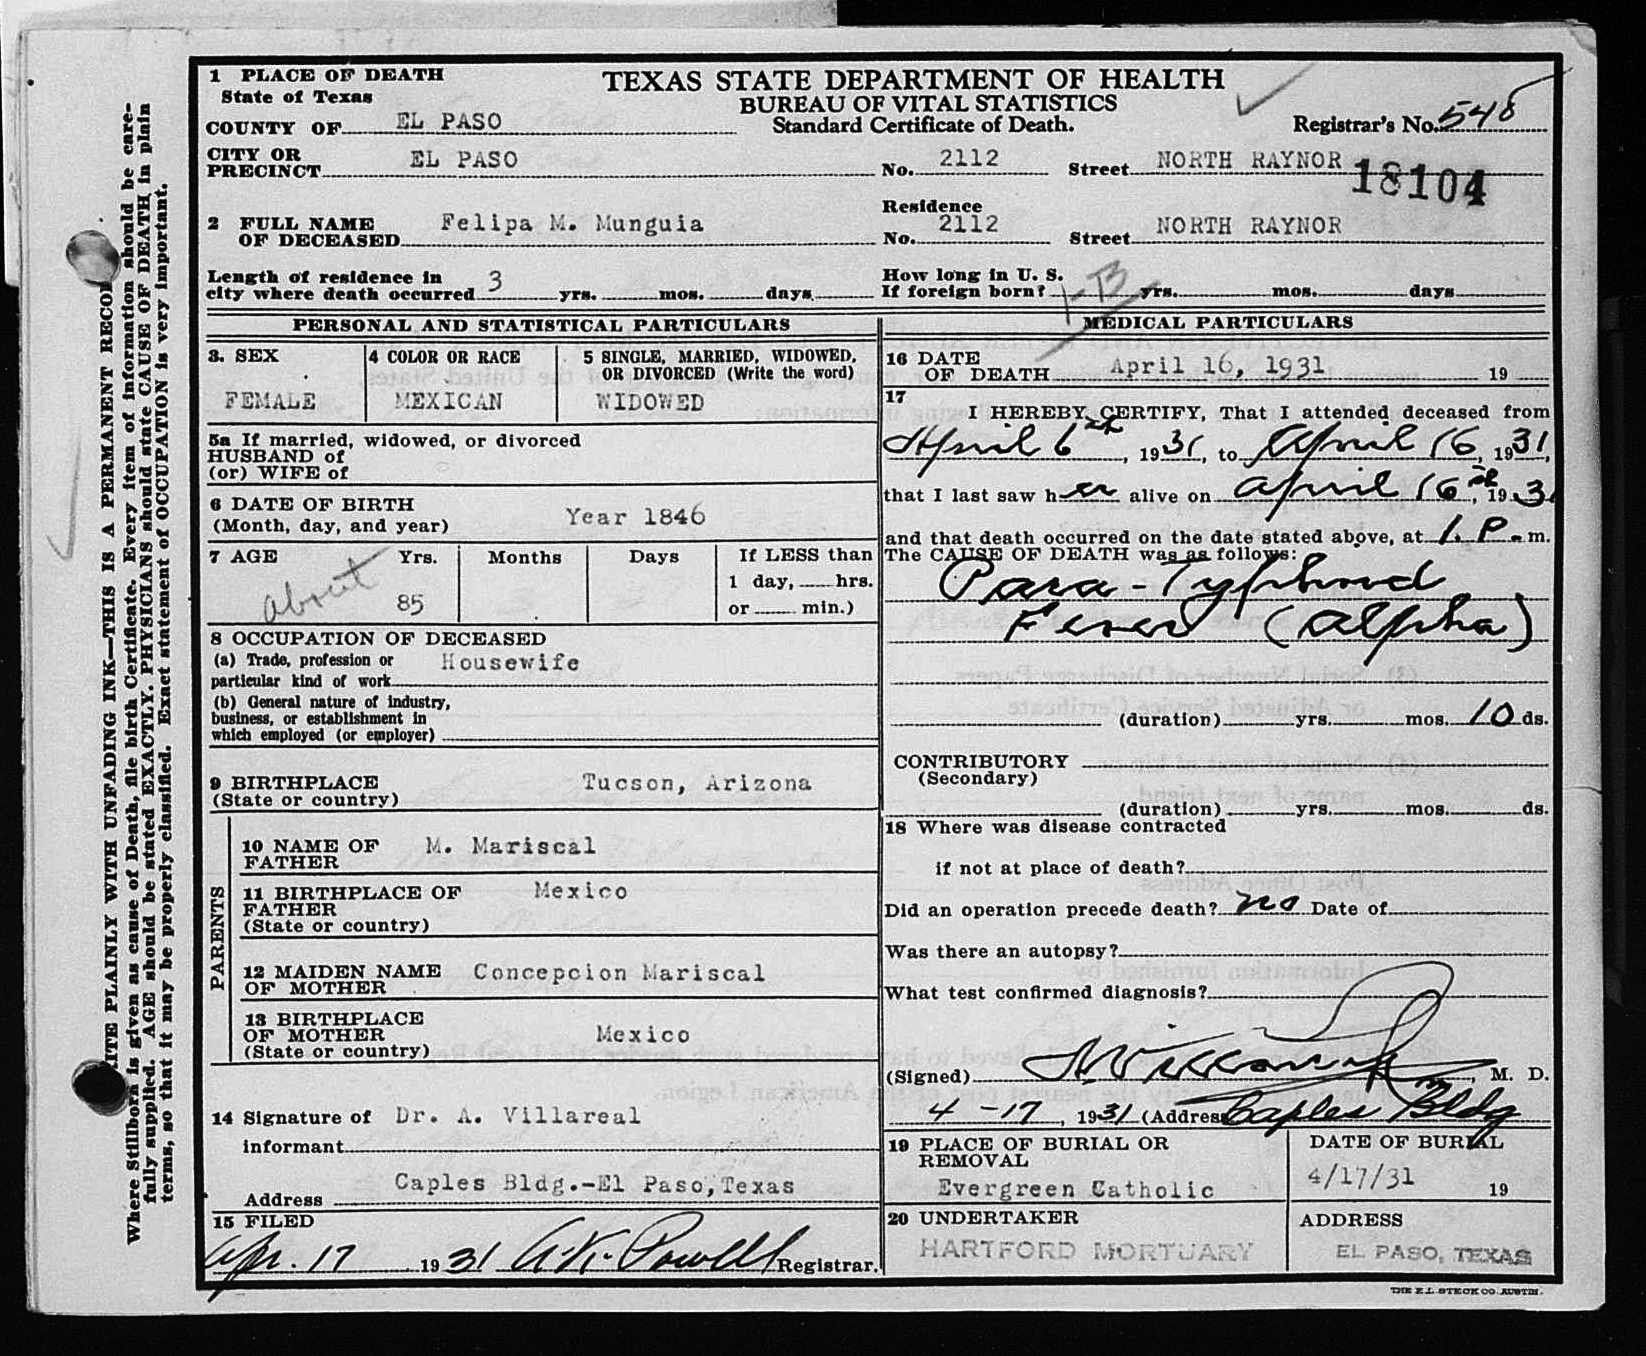 1 PLACE OF DEATH
State of Texas
COUNTY OF EL PASO
TEXAS STATE DEPARTMENT OF HEALTH
BUREAU OF VITAL STATISTICS
Standard Certificate of Death.
Registrar's No. 548
CITY OR
PRECINCT EL PASO
No. 2112 Street NORTH RAYNOR
18104
2 FULL NAME
OF DECEASED Felipa M. Munguia
Residence
No. 2112 Street NORTH RAYNOR
Length of residence in
city where death occurred 3 yrs. mos. days
How long in U. S.
If foreign born? yrs. mos. days
PERSONAL AND STATISTICAL PARTICULARS
3. SEX
FEMALE
4 COLOR OR RACE
MEXICAN
5 SINGLE, MARRIED, WIDOWED,
OR DIVORCED (Write the word)
WIDOWED
5a If married, widowed, or divorced
HUSBAND of
(or) WIFE of
6 DATE OF BIRTH
(Month, day, and year) Year 1846
7 AGE Yrs. Months Days If LESS than
1 day, hrs.
or min.)
about 85
8 OCCUPATION OF DECEASED
(a) Trade, profession or
particular kind of work Housewife
(b) General nature of industry,
business, or establishment in
which employed (or employer)
9 BIRTHPLACE
(State or country) Tucson, Arizona
PARENTS
10 NAME OF
FATHER M. Mariscal
11 BIRTHPLACE OF
FATHER
(State or country) Mexico
12 MAIDEN NAME
OF MOTHER Concepcion Mariscal
13 BIRTHPLACE
OF MOTHER
(State or country) Mexico
14 Signature of
informant Dr. A. Villareal
Address Caples Bldg.-El Paso,Texas
15 FILED
Apr. 17 1931 A.K. Powell Registrar.
MEDICAL PARTICULARS
16 DATE
OF DEATH April 16, 1931 19
17
I HEREBY CERTIFY, That I attended deceased from
April 6th, 1931, to April 16, 1931,
that I last saw her alive on April 16th, 193
and that death occurred on the date stated above, at 1. P. m.
The CAUSE OF DEATH was as follows:
Para-Typhoid
Fever (alpha)
(duration) yrs. mos. 10 ds.
CONTRIBUTORY
(Secondary)
(duration) yrs. mos. ds.
18 Where was disease contracted
if not at place of death?
Did an operation precede death? no Date of
Was there an autopsy?
What test confirmed diagnosis?
(Signed) M. D.
4-17, 1931 (Address Caples Bldg
19 PLACE OF BURIAL OR
REMOVAL
Evergreen Catholic
DATE OF BURIAL
4/17/31 19
20 UNDERTAKER
HARTFORD MORTUARY
ADDRESS
EL PASO, TEXAS
THE E.L. STECK CO. AUSTIN.
PLAINLY WITH UNFADING INK—THIS IS A PERMANENT
Where Stillborn is given as cause of Death, file birth Certificate. Every item of information should be care-
fully supplied. AGE should be stated EXACTLY. PHYSICIANS should state CAUSE OF DEATH in plain
terms, so that it may be properly classified. Exact statement of OCCUPATION is very important.